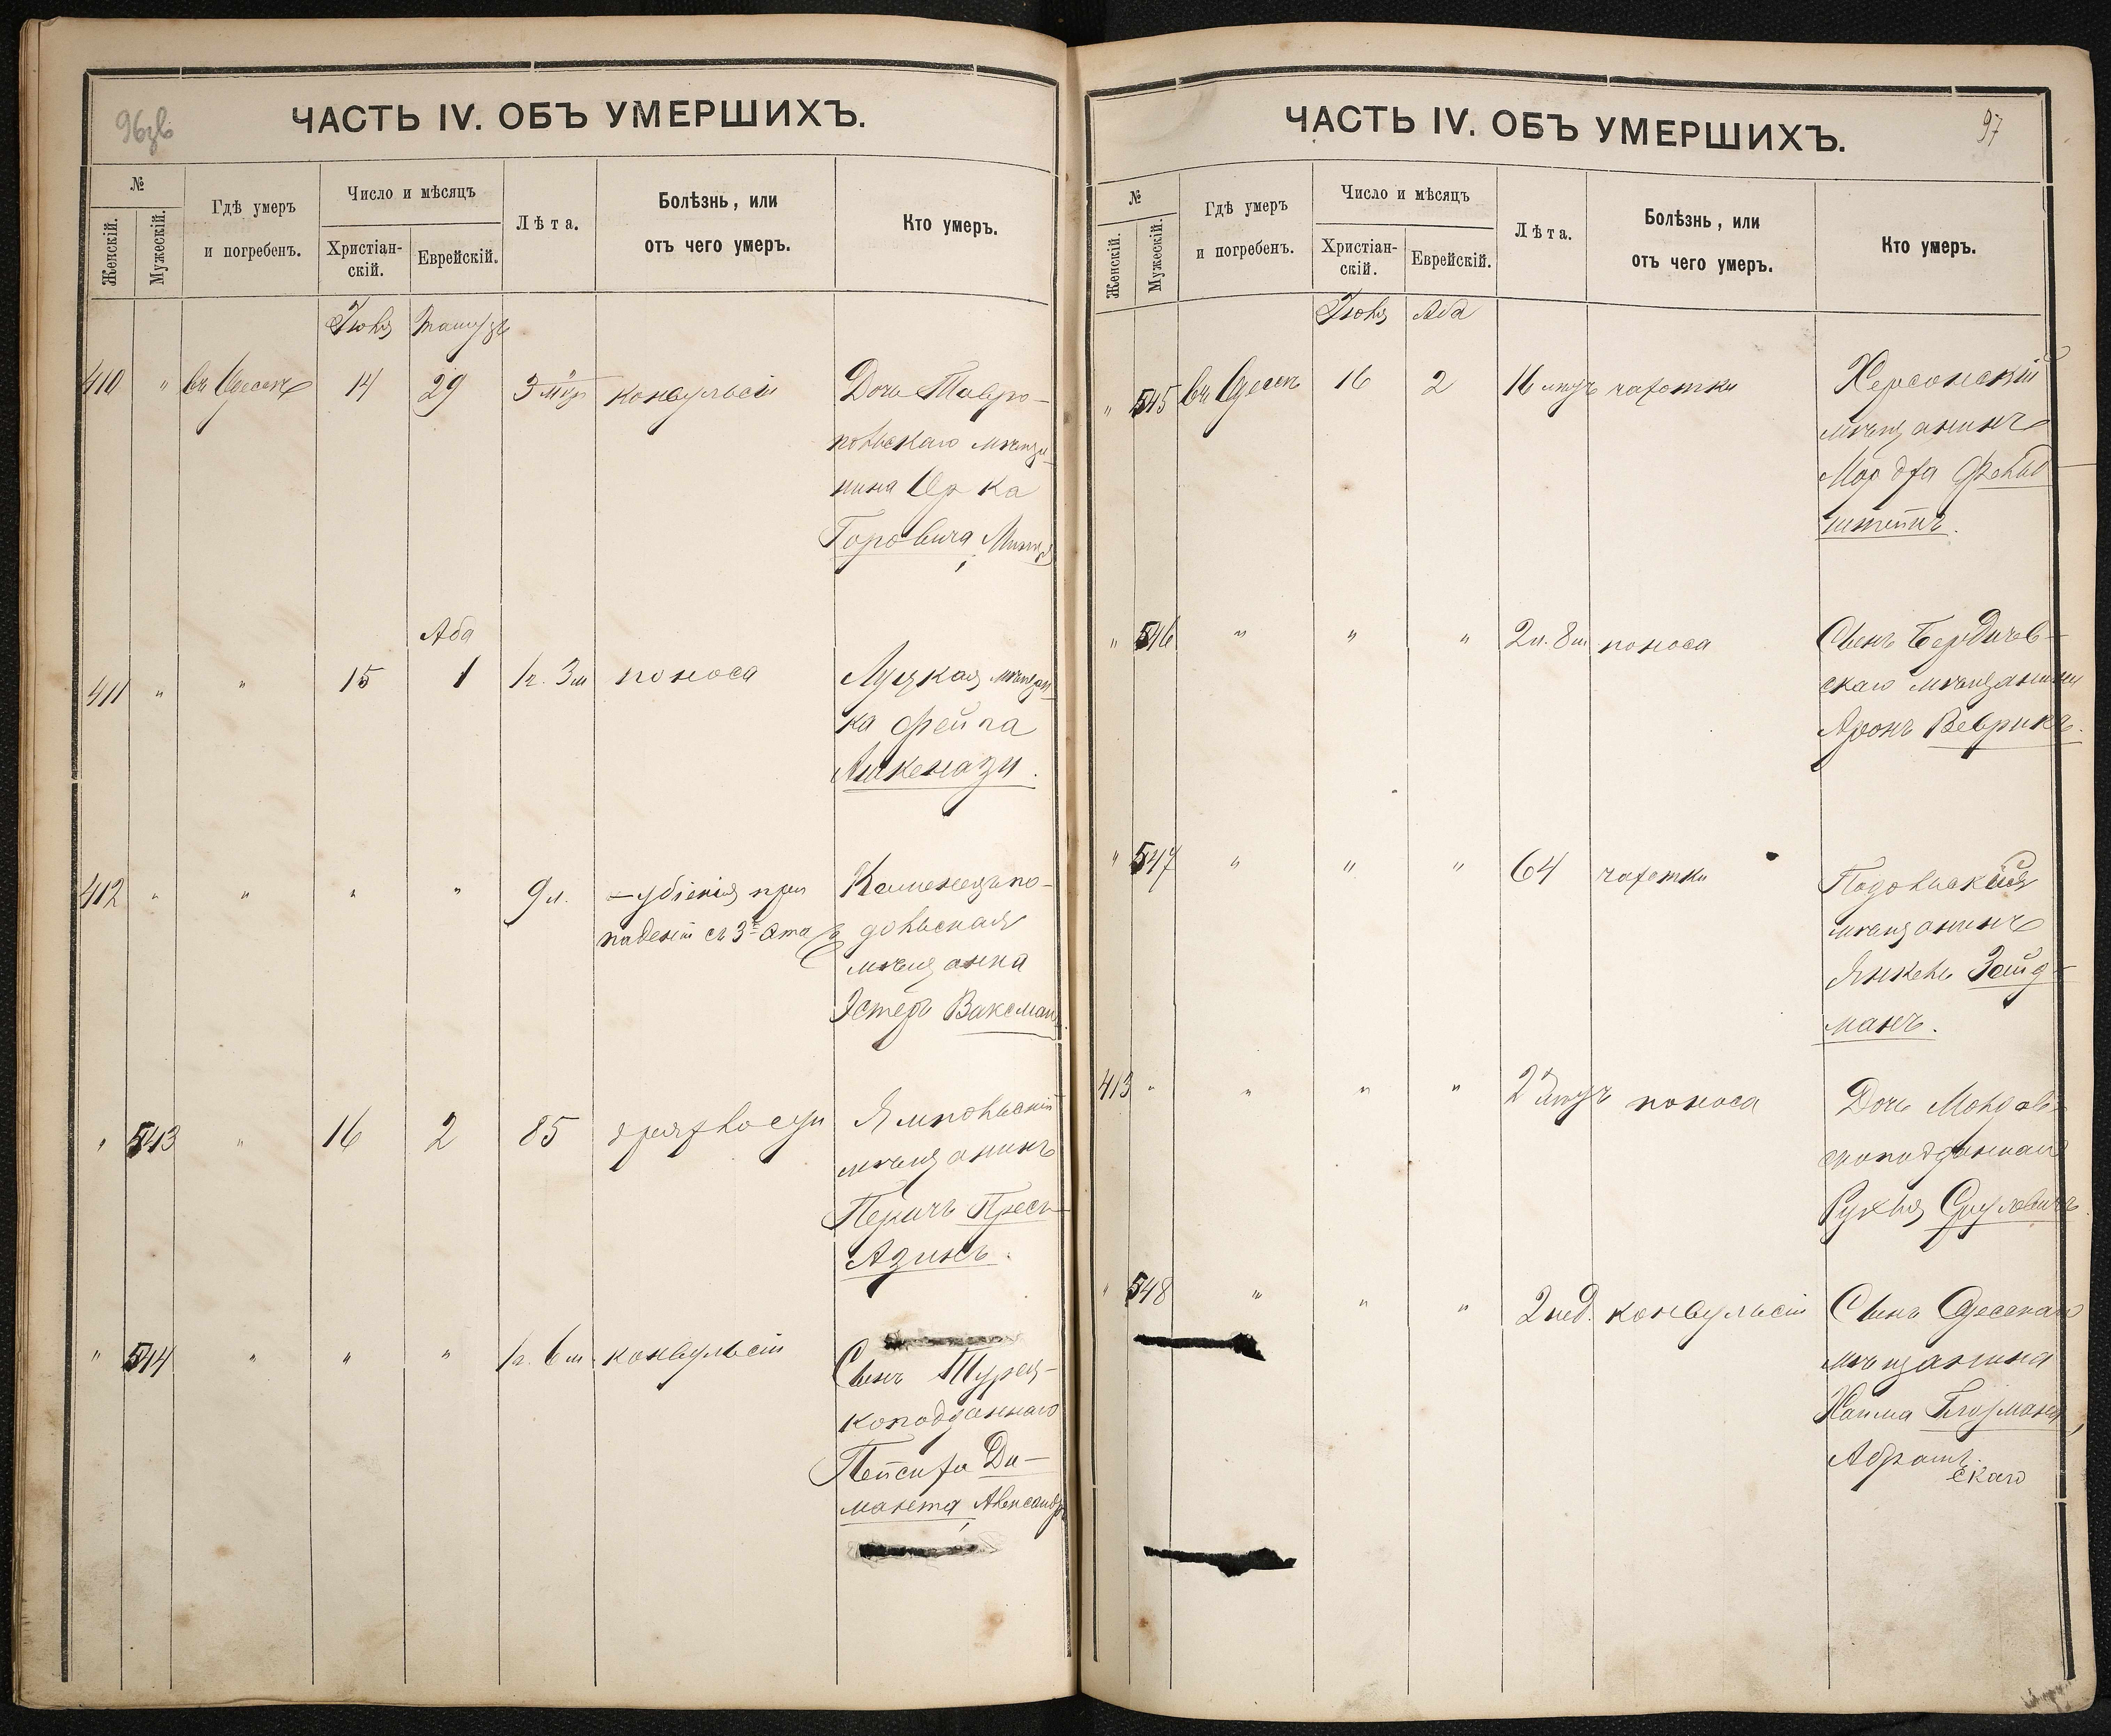 96зв
ЧАСТЬ IV. ОБЪ УМЕРШИХЪ.
№
Женскій.
Мужескій.
Гдѣ умеръ
и погребенъ.
Число и мѣсяцъ
Христіан-
скій.
Еврейскій.
Лѣта.
Болѣзнь, или
отъ чего умеръ.
Кто умеръ.
Іюля Тамузъ
410 " въ Одессѣ 14 29 3 конвульсіи Дочь Тавро-
польскаго мѣща-
нина
Горовица,
Аба
411 " " 15 1 1г. 3м поноса Луцкая мѣщан-
ка Фейга
Ашкенази.
412 " " " " 9л. убіенія при Каменецъ по-
паденіи съ 3 этажа дольская
мѣщанка
Эстеръ Ваксманъ
" 543 " 16 2 85 дряхлости Ямпольскій
мѣщанинъ
Перецъ
" 544 " " " 1г. 6м. конвульсіи Сынъ Турец-
коподданнаго
Ди-
манта, Александръ
97
ЧАСТЬ IV. ОБЪ УМЕРШИХЪ.
№
Женскій.
Мужескій.
Гдѣ умеръ
и погребенъ.
Число и мѣсяцъ
Христіан-
скій.
Еврейскій.
Лѣта.
Болѣзнь, или
отъ чего умеръ.
Кто умеръ.
Іюля Аба
" 545 въ Одессѣ 16 2 16 лѣтъ чахотки Херсонскій
мѣщанинъ
Мордха Фельд
штейнъ.
" 546 " " " 2л. 8м поноса Сынъ Бердичев-
скаго мѣщанина
Аронъ Веврикъ.
" 547 " " " 64 чахотки Подольскій
мѣщанинъ
Янкель Зайд-
манъ.
413 " " " " 2 поноса Дочь Молдав-
скоподданнаго
Рухля
" 548 " " " 2 нед. конвульсіи Сынъ Одесскаго
мѣщанина
Хаима
Абрамъ.
скаго